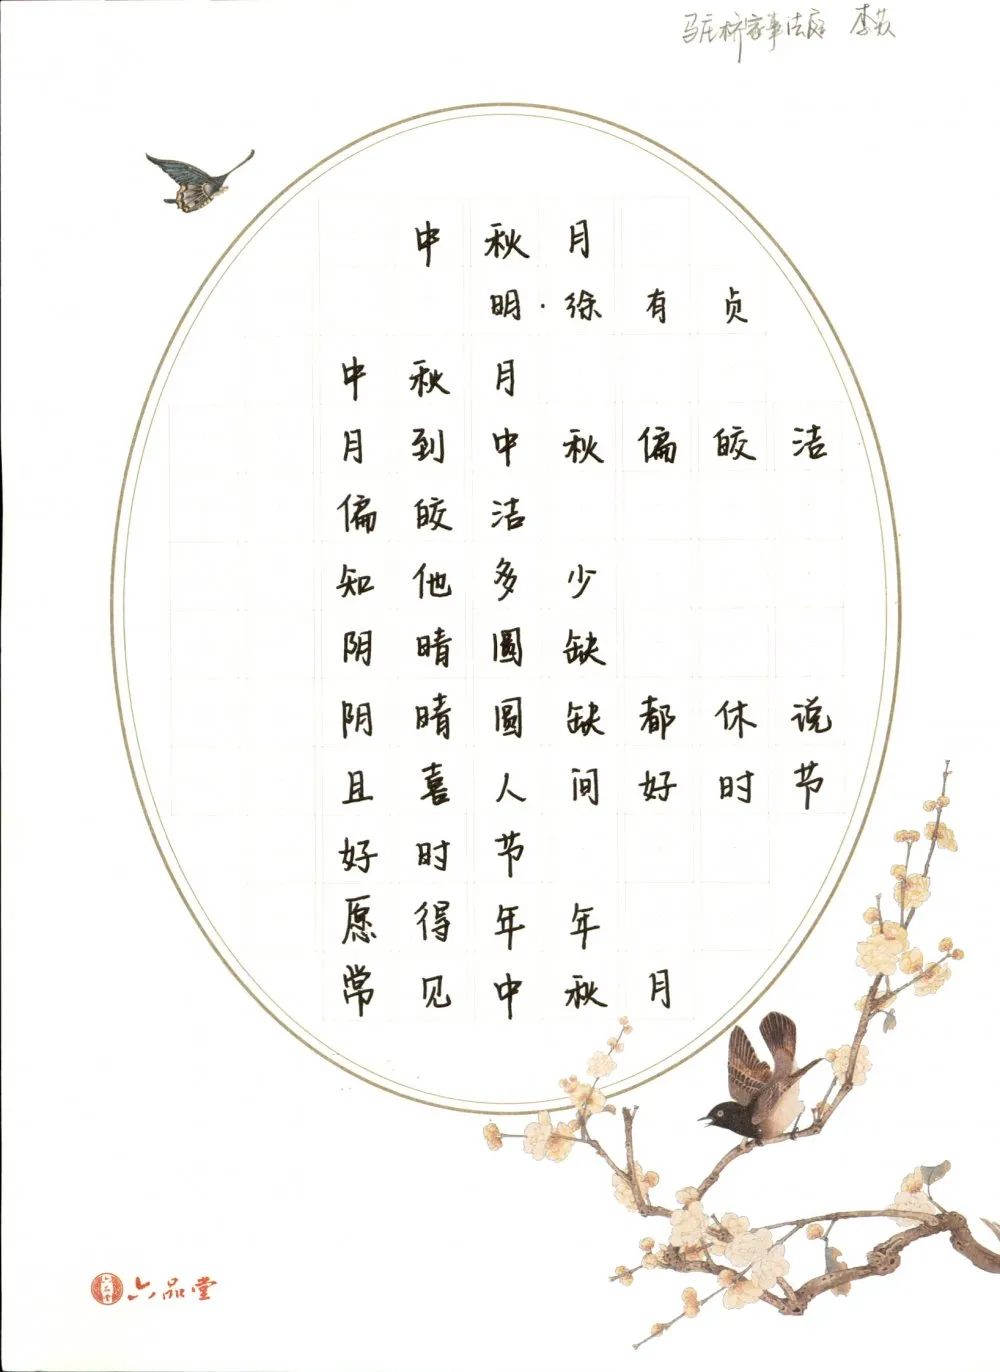 马庄桥家事法庭 李苡
中秋月
明·徐有贞
中秋月
月到中秋偏皎洁
偏皎洁
知他多少
阴晴圆缺
阴晴圆缺都休说
且喜人间好时节
好时节
愿得年年
常见中秋月
六品堂